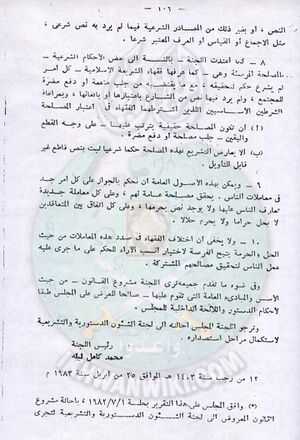 — ١٠٦ —
النص ، أو بغير ذلك من المصادر الشرعية فيما لم يرد به نص شرعى ،
مثل الاجماع أو القياس أو العرف المعتبر شرعا .
٨ — كما اعتدت اللجنة — بالنسبة الى بعض الأحكام الشرعية —
بالمصلحة المرسلة وهى — كما عرفها فقهاء الشريعة الاسلامية — كل أمر
لم يشرع حكم لتحقيقه مع ما يقتضيه من جلب منفعة أو دفع مضرة
للمجتمع ، ولم يرد فيها نص من الشارع باعتبارها أو بالغائها ، وبمراعاة
الشرطين الأساسيين اللذين اشترطهما الفقهاء فى اعتبار المصلحة
(أ) أن تكون المصلحة حقيقية يترتب عليها — على وجه القطع
واليقين — جلب مصلحة أو دفع مضرة .
(ب) ألا يعارض التشريع بهذه المصلحة حكما شرعيا ثبت بنص قاطع غير
قابل للتأويل .
٩ — ويمكن بهذه الأصول العامة أن نحكم بالجواز على كل أمر جد
فى معاملات الناس . يحقق مصلحة عامة لهم ، وعلى كل معاملة جديدة
تعارف الناس عليها ولا يوجد نص يحرمها ، وعلى كل اتفاق بين المتعاقدين
لا يحل حراما ولا يحرم حلالا .
١٠ — ولا يخفى أن اختلاف الفقهاء فى صدد هذه المعاملات من حيث
الحل والحرمة يتيح الفرصة لاختيار أنسب الآراء للحكم على ما جرى عليه
عمل الناس لتحقيق مصالحهم المشتركة .
وفى ضوء ما تقدم جميعه ترى اللجنة مشروع القانون — من حيث
الأسس والمبادىء العامة التى تقوم عليها — صالحا للعرض على المجلس طبقا
لأحكام الدستور واللائحة الداخلية للمجلس .
وترجو اللجنة المجلس احالته الى لجنة الشئون الدستورية والتشريعية
لاستكمال مراحل استصداره .
رئيس اللجنة
محمد كامل ليله
١٢ من رجب سنة ١٤٠٣ هـ الموافق ٢٥ من أبريل سنة ١٩٨٣ م
وافق المجلس على هذا التقرير بجلسة
باحالة مشروع
القانون المعروض الى لجنة الشئون الدستورية والتشريعية لتجرى